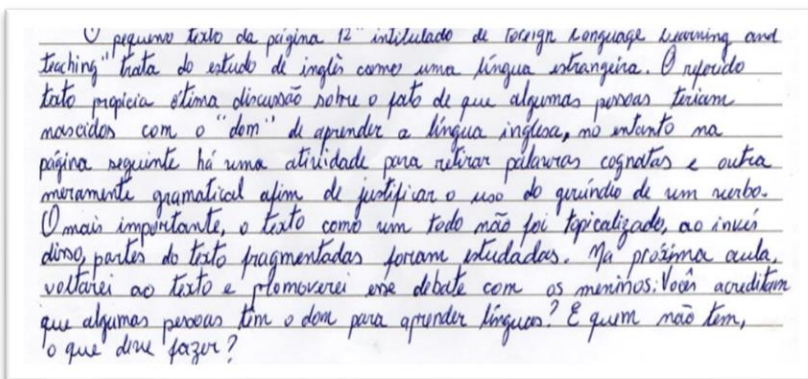 O pequeno texto da página 12 intitulado de Foreign Language Learning and
teaching" trata do estudo de inglês como uma língua estrangeira. O referido
texto propicia ótima discussão sobre o fato de que algumas pessoas teriam
nascidos com o "dom" de aprender a língua inglesa, no entanto na
página seguinte há uma atividade para retirar palavras cognatas e outra
meramente gramatical afim de justificar o uso do gerúndio de um verbo.
O mais importante, o texto como um todo não foi topicalizado, ao invés
disso, partes do texto fragmentadas foram estudadas. Na próxima aula,
voltarei ao texto e promoverei esse debate com os meninos: Vocês acreditam
que algumas pessoas têm o dom para aprender línguas? E quem não tem,
o que deve fazer?